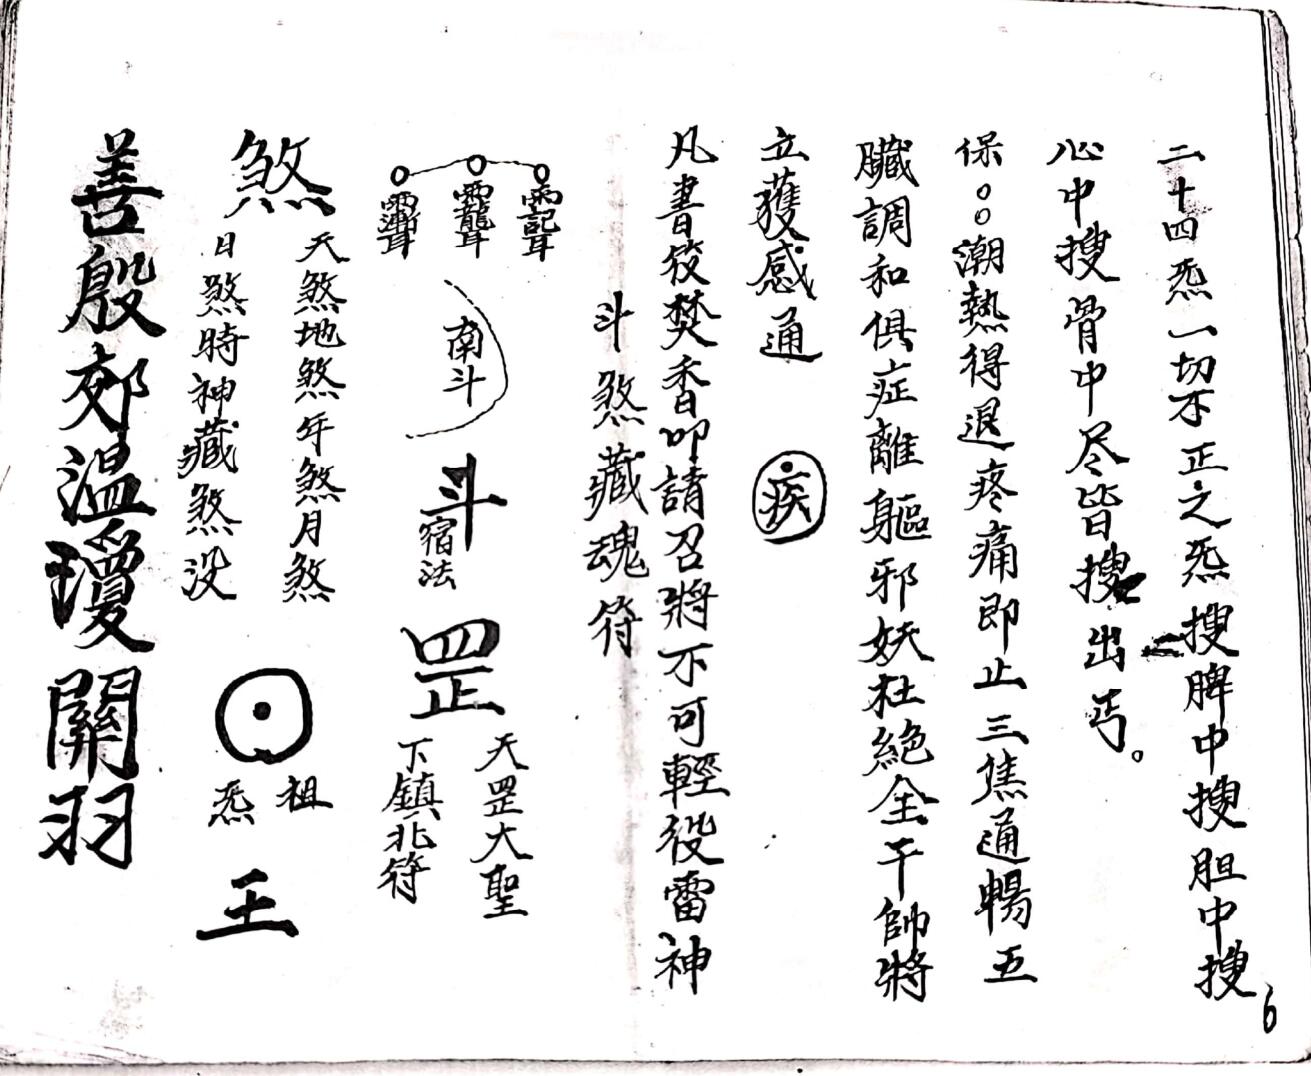 二十四炁一切不正之炁搜脾中搜胆中搜
心中搜骨中尽皆搜出丐。
保〇〇潮熱得退疼痛即止三焦通暢五
臟調和俱症離軀邪妖杜絕全干帥將
立獲感通 疾
凡書符焚香叩請召將不可輕役雷神
斗煞藏魂符
南斗
斗
宿法
罡
天罡大聖
下鎮北符
煞
天煞地煞年煞月煞
日煞時神藏煞没
祖
炁
王
善殷郊温瓊關羽
6